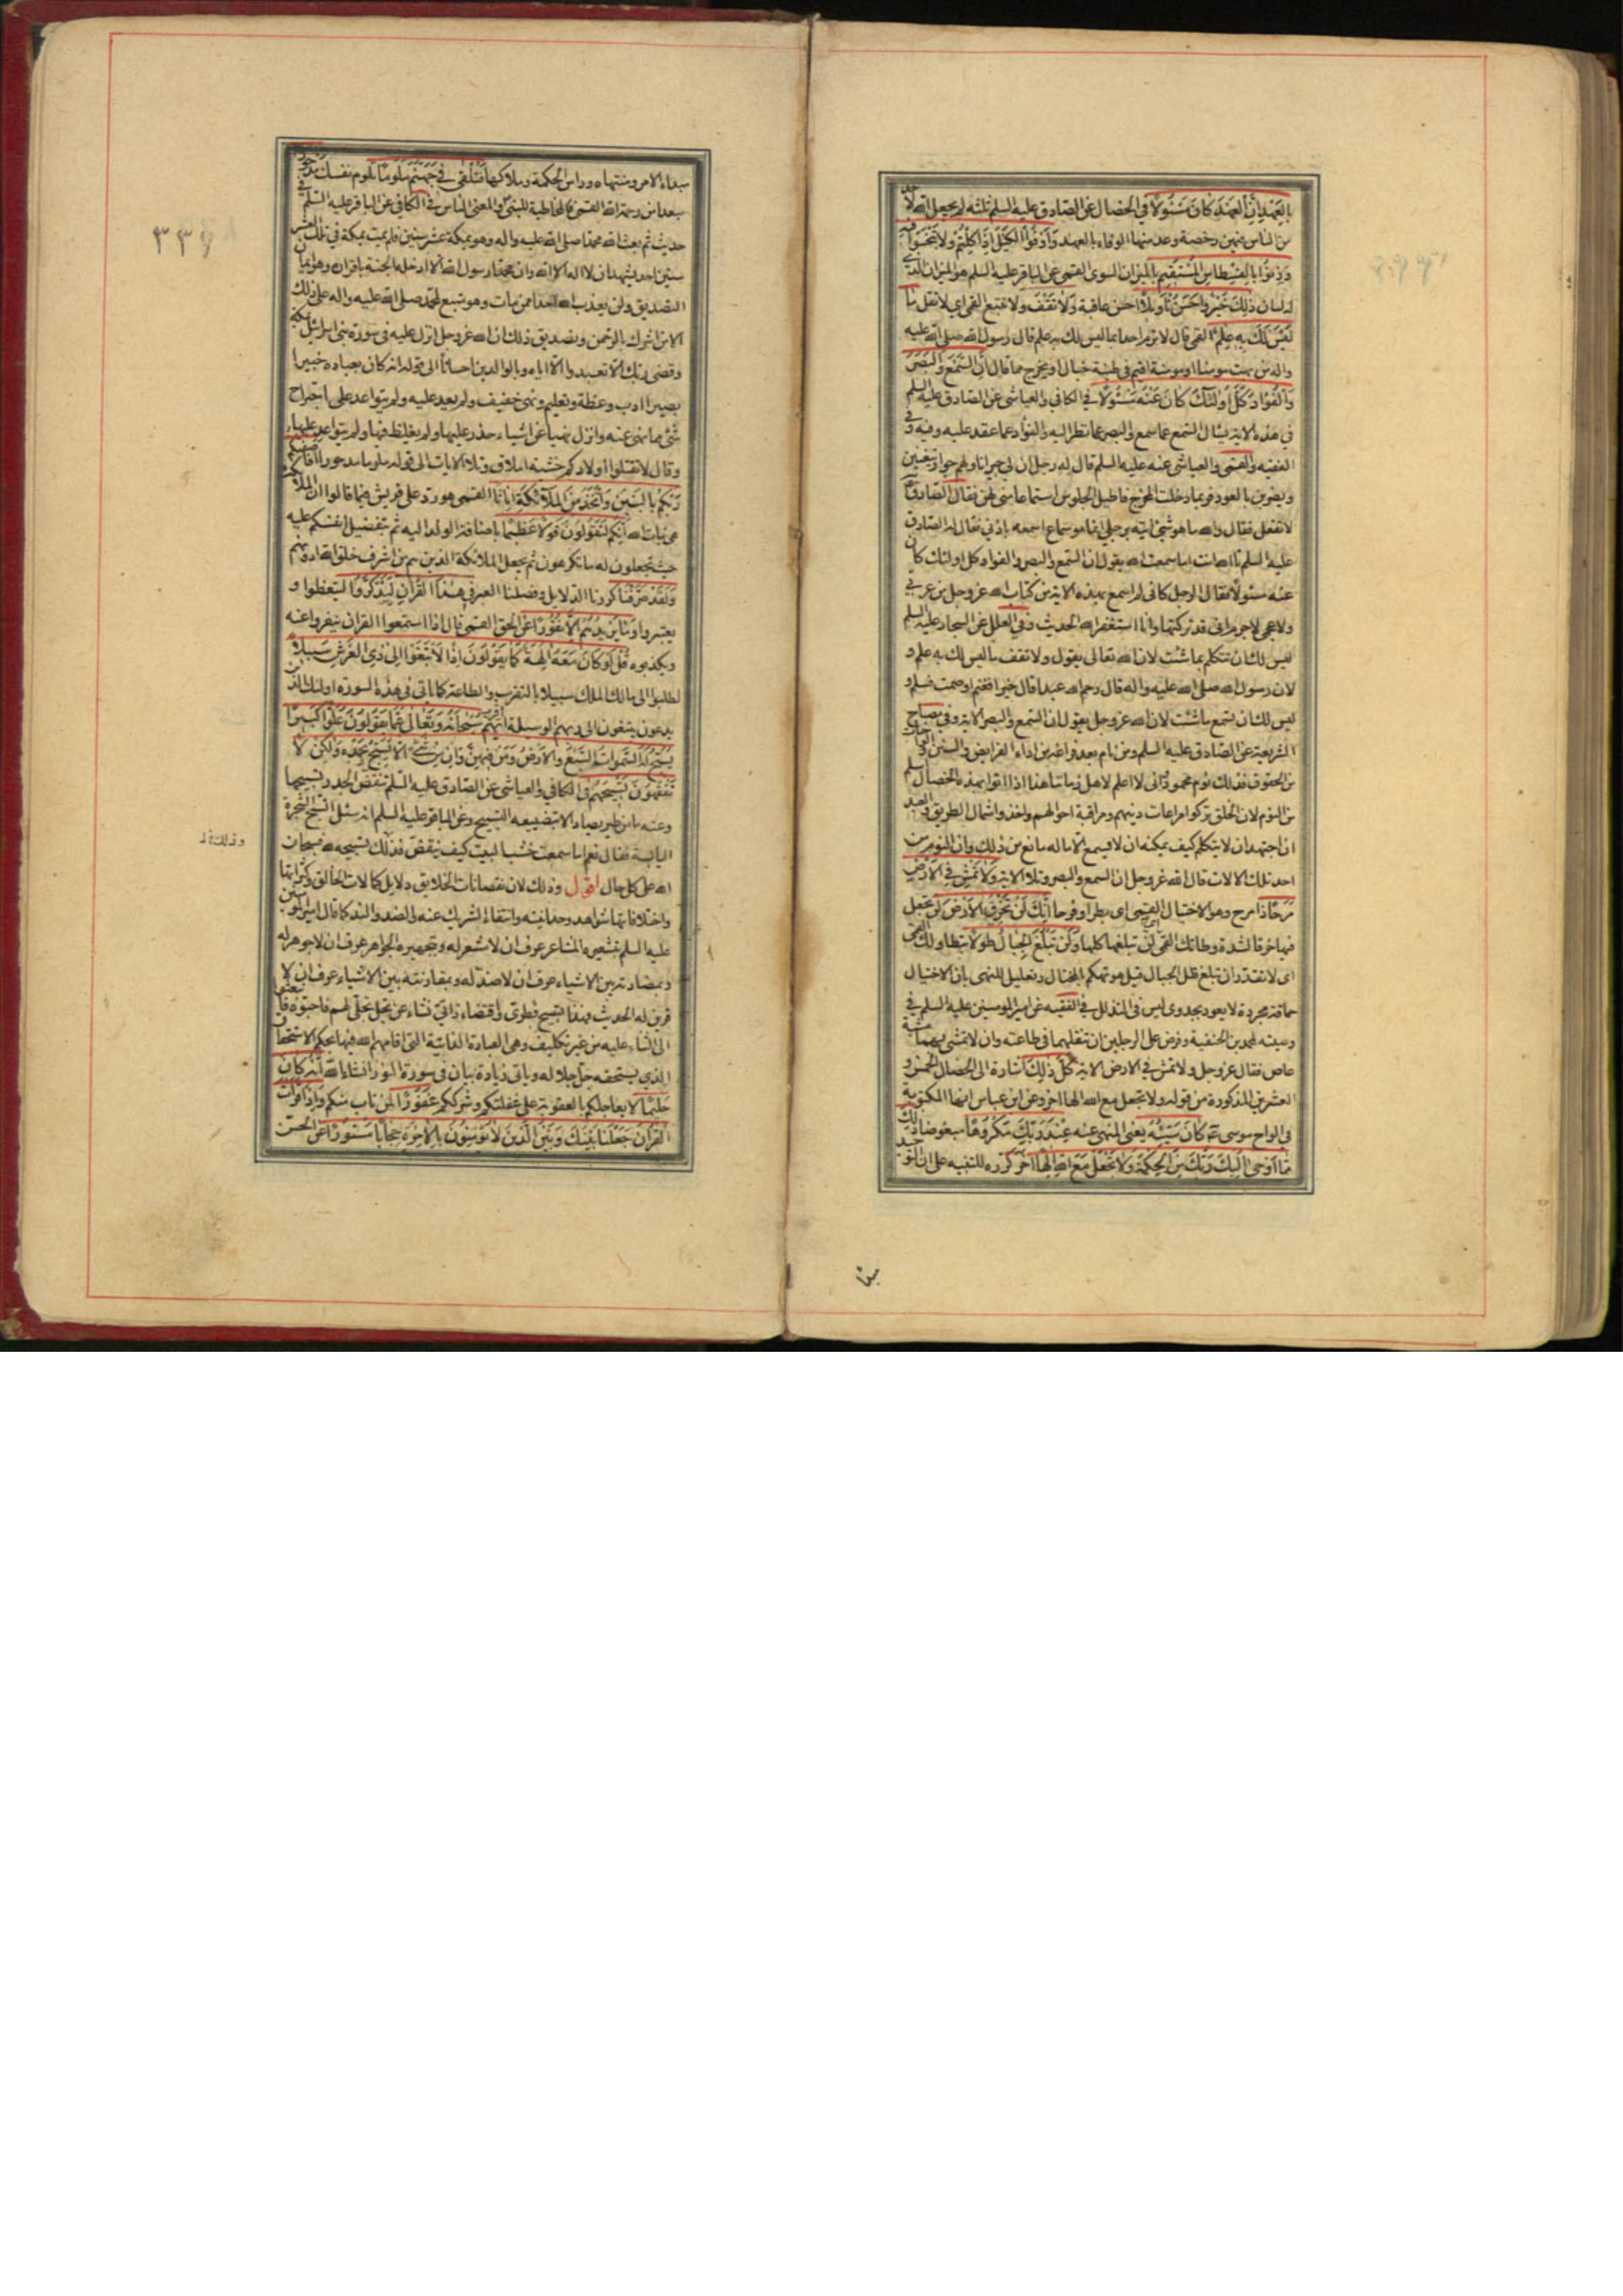 بِالْعَهْدِ إِنَّ الْعَهْدَ كَانَ مَسْئُولًا في الخصال عن الصادق عليه السلم ثلثة لم يجعل الله لاحد
من الناس فيهن رخصة وعد منها الوفاء بالعهد وَأَوْفُوا الْكَيْلَ إِذَا كِلْتُمْ ولا تبخسوا فيه
وَزِنُوا بِالْقِسْطَاسِ الْمُسْتَقِيمِ بالميزان السوى القمى عن الباقر عليه السلم هو الميزان الذى
له لسان ذَلِكَ خَيْرٌ وَأَحْسَنُ تَأْوِيلًا احسن عاقبة وَلَا تَقْفُ ولا تتبع القمى اى لا تقل مَا
لَيْسَ لَكَ بِهِ عِلْمٌ القمى قال لا ترم احدا بما ليس لك به علم قال رسول الله صلى الله عليه
واله من بهت مومنا او مومنة اقيم فى طينة خبال او يخرج مما قال إِنَّ السَّمْعَ وَالْبَصَرَ
وَالْفُؤَادَ كُلُّ أُولَئِكَ كَانَ عَنْهُ مَسْئُولًا في الكافي والعياشى عن الصادق عليه السلم
فى هذه الاية يسال السمع عما سمع والبصر عما نظر اليه والفؤاد عما عقد عليه وفيه وفى
الفقيه والقمى والعياشى عنه عليه السلم قال له رجل ان لى جيرانا ولهم جوار يتغنين
ويضربن بالعود فربما دخلت المخرج فاطيل الجلوس استماعا منى لهن فقال الصادق ع
لا تفعل فقال والله ما هو شئ اتيته برجلى انما هو سماع اسمعه باذنى فقال له الصادق
عليه السلم تا الله انت اما سمعت الله يقول ان السمع والبصر والفواد كل اولئك كان
عنه مسئولا فقال الرجل كانى لم اسمع بهذه الاية من كتاب الله عز وجل من عربى
ولا عجمى لا جرم انى قد تركتها وانا استغفر الله الحديث وفى العلل عن السجاد عليه السلم
ليس لك ان تتكلم بما شئت لان الله تعالى يقول ولا تقف ما ليس لك به علم و
لان رسول الله صلى الله عليه واله قال رحم الله عبدا قال خيرا فغنم او صمت فسلم و
ليس لك ان تسمع ما شئت لان الله عز وجل يقول ان السمع والبصر الاية وفى مصباح
الشريعة عن الصادق عليه السلم ومن نام بعد فراغه من اداء الفرايض والسنن والواجبات
من الحقوق فذلك نوم محمود وانى لا اعلم لاهل زماننا هذا اذا اتوا بهذه الخصال اسلم
من النوم لان الخلق تركوا مراعات دينهم ومراقبة احوالهم واخذوا شمال الطريق والعبد
ان اجتهد ان لا يتكلم كيف يمكنه ان لا يسمع الا ما له مانع من ذلك وان النوم من
احد تلك الالات قال الله عز وجل ان السمع والبصر وتلا الاية وَلَا تَمْشِ فِي الْأَرْضِ
مَرَحًا ذا مرح وهو الاختيال القمى اى بطرا وفرحا إِنَّكَ لَنْ تَخْرِقَ الْأَرْضَ لن تجعل
فيها خرقا لشدة وطاتك القمى اى لن تبلغها كلها وَلَنْ تَبْلُغَ الْجِبَالَ طُولًا بتطاولك القمى
اى لا تقدر ان تبلغ قلل الجبال قيل هو تهكم بالمختال وتعليل للنهى بان الاختيال
حماقة مجردة لا يعود بجدوى ليس فى التذلل في الفقيه عن امير المومنين عليه السلم فى
وصيته لمحمد بن الحنفية وفرض على الرجلين ان تنقلهما فى طاعته وان لا تمشى بهما مشية
عاص فقال عز وجل ولا تمش فى الارض الاية كُلُّ ذَلِكَ اشارة الى الخصال الخمس و
العشرين المذكورة من قوله ولا تجعل مع الله الها اخر وعن ابن عباس انها المكتوبة
فى الواح موسى ع كَانَ سَيِّئُهُ يعنى المنهى عنه عِنْدَ رَبِّكَ مَكْرُوهًا مبغوضا ذَلِكَ
مِمَّا أَوْحَى إِلَيْكَ رَبُّكَ مِنَ الْحِكْمَةِ وَلَا تَجْعَلْ مَعَ اللَّهِ إِلَهًا آخَرَ كرره للتنبيه على ان التوحيد
مبدأ
٣٣٩
مبداء الامر ومنتهاه وراس الحكمة وملاكها فَتُلْقَى فِي جَهَنَّمَ مَلُومًا تلوم نفسك مَدْحُورًا
مبعدا من رحمة الله القمى فالمخاطبة للنبى والمعنى للناس فى الكافى عن الباقر عليه السلم فى
حديث ثم بعث الله محمدا صلى الله عليه واله وهو بمكة عشر سنين فلم يمت بمكة فى تلك العشر
سنين احد يشهد ان لا اله الا الله وان محمدا رسول الله الا ادخله الجنة باقراره وهو ايمان
التصديق ولن يعذب الله احدا ممن مات وهو متبع لمحمد صلى الله عليه واله على ذلك
الا من اشرك بالرحمن وتصديق ذلك ان الله عز وجل انزل عليه فى سورة بنى اسرائيل بمكة
وقضى ربك الا تعبدوا الا اياه وبالوالدين احسانا الى قوله انه كان بعباده خبيرا
بصيرا ادب وعظة وتعليم ونهى خفيف ولم يعد عليه ولم يتواعد على اجتراح
شئ مما نهى عنه وانزل نهيا عن اشياء حذر عليها ولم يغلظ فيها ولم يتواعد عليها
وقال لا تقتلوا اولادكم خشية املاق وتلا الايات الى قوله ملوما مدحورا أَفَأَصْفَاكُمْ
رَبُّكُمْ بِالْبَنِينَ وَاتَّخَذَ مِنَ الْمَلَائِكَةِ إِنَاثًا القمى هو رد على قريش فيما قالوا ان الملائكة
هى بنات الله إِنَّكُمْ لَتَقُولُونَ قَوْلًا عَظِيمًا باضافة الولد اليه ثم بتفضيل انفسكم عليه
حيث تجعلون له ما تكرهون ثم بجعل الملائكة الذين هم من اشرف خلق الله ادونهم
وَلَقَدْ صَرَّفْنَا كررنا الدلايل وفصلنا العبر فِي هَذَا الْقُرْآنِ لِيَذَّكَّرُوا ليتعظوا و
يعتبروا وَمَا يَزِيدُهُمْ إِلَّا نُفُورًا عن الحق القمى قال اذا استمعوا القران ينفروا عنه
ويكذبوه قُلْ لَوْ كَانَ مَعَهُ آلِهَةٌ كَمَا يَقُولُونَ إِذًا لَابْتَغَوْا إِلَى ذِي الْعَرْشِ سَبِيلًا
لطلبوا الى مالك الملك سبيلا بالتقرب والطاعة كما ياتى فى هذه السورة اولئك الذين
يدعون يبتغون الى ربهم الوسيلة ايهم اقرب سُبْحَانَهُ وَتَعَالَى عَمَّا يَقُولُونَ عُلُوًّا كَبِيرًا
يُسَبِّحُ لَهُ السَّمَوَاتُ السَّبْعُ وَالْأَرْضُ وَمَنْ فِيهِنَّ وَإِنْ مِنْ شَيْءٍ إِلَّا يُسَبِّحُ بِحَمْدِهِ وَلَكِنْ لَا
تَفْقَهُونَ تَسْبِيحَهُمْ فى الكافى والعياشى عن الصادق عليه السلم تنقض الجدر تسبيحها
وعنه ما من طير يصاد الا بتضييعه التسبيح وعن الباقر عليه السلم انه سئل اتسبح الشجرة
اليابسة فقال نعم اما سمعت خشب البيت كيف ينقض فذلك تسبيحه لله فسبحان
وذلك
الله على كل حال اقول وذلك لان نقصانات الخلايق دلايل كمالات الخالق وكثراتها
واختلافاتها شواهد وحدانيته وانتفاء الشريك عنه والضد والند كما قال امير المومنين
عليه السلم بتشعيره المشاعر عرف ان لا مشعر له وبتجهيره الجواهر عرف ان لا جوهر له
وبمضادته بين الاشياء عرف ان لا ضد له وبمقارنته بين الاشياء عرف ان لا
قرين له الحديث فهذا تسبيح فطرى واقتضاء ذاتى نشاء عن تجل تجلى لهم فاحبوه فابتعثوا
الى الثناء عليه من غير تكليف وهى العبادة الذاتية التى اقامهم الله فيها بحكم الاستحقاق
الذى يستحقه جل جلاله وياتى زيادة بيان فى سورة النور انشاء الله إِنَّهُ كَانَ
حَلِيمًا لا يعاجلكم بالعقوبة على غفلتكم وشرككم غَفُورًا لمن تاب منكم وَإِذَا قَرَأْتَ
الْقُرْآنَ جَعَلْنَا بَيْنَكَ وَبَيْنَ الَّذِينَ لَا يُؤْمِنُونَ بِالْآخِرَةِ حِجَابًا مَسْتُورًا عن الحس